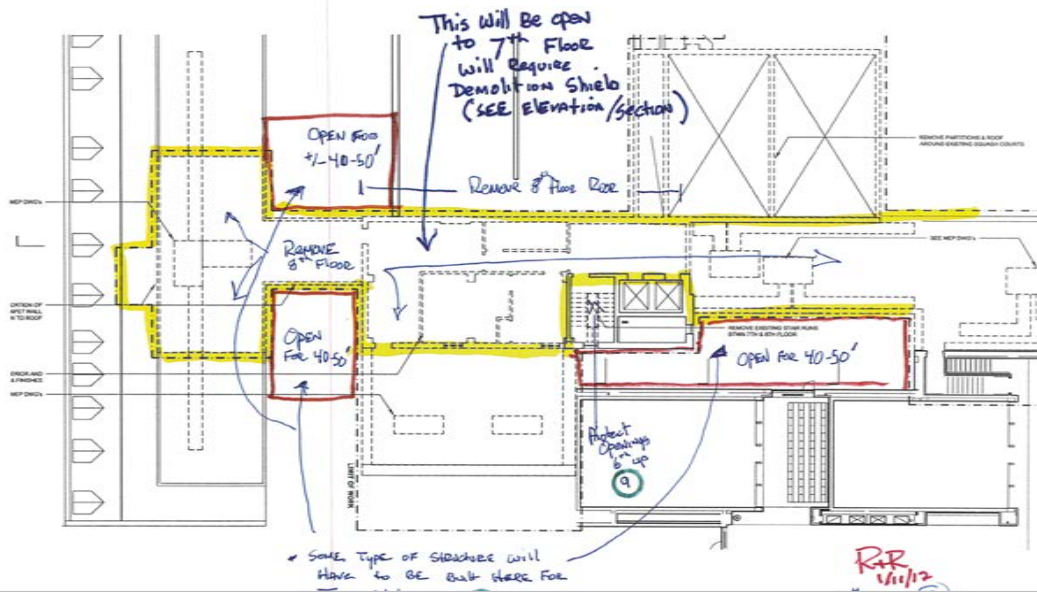 This will Be open
to 7th Floor
will Require
Demolition Shield
(SEE ElEVATION/SECTION)
OPEN FOR
+/- 40-50'
Remove 8th Floor Roof
REMOVE PARTITIONS & ROOF
AROUND EXISTING SQUASH COURTS
MEP DWG's
SEE MEP DWG's
REMOVE
8th FLOOR
ATION OF
APET WALL
N TO ROOF
OPEN
FOR 40-50'
REMOVE EXISTING STAIR RUNS
BTWN 7TH & 8TH FLOOR
OPEN FOR 40-50'
ERIOR AND
& FINISHES
MEP DWG's
Protect
Openings
6th up
9
LIMIT OF WORK
* SOME TYPE OF STRUCTURE WILL
HAVE to BE Built HERE FOR
R+R
1/11/12